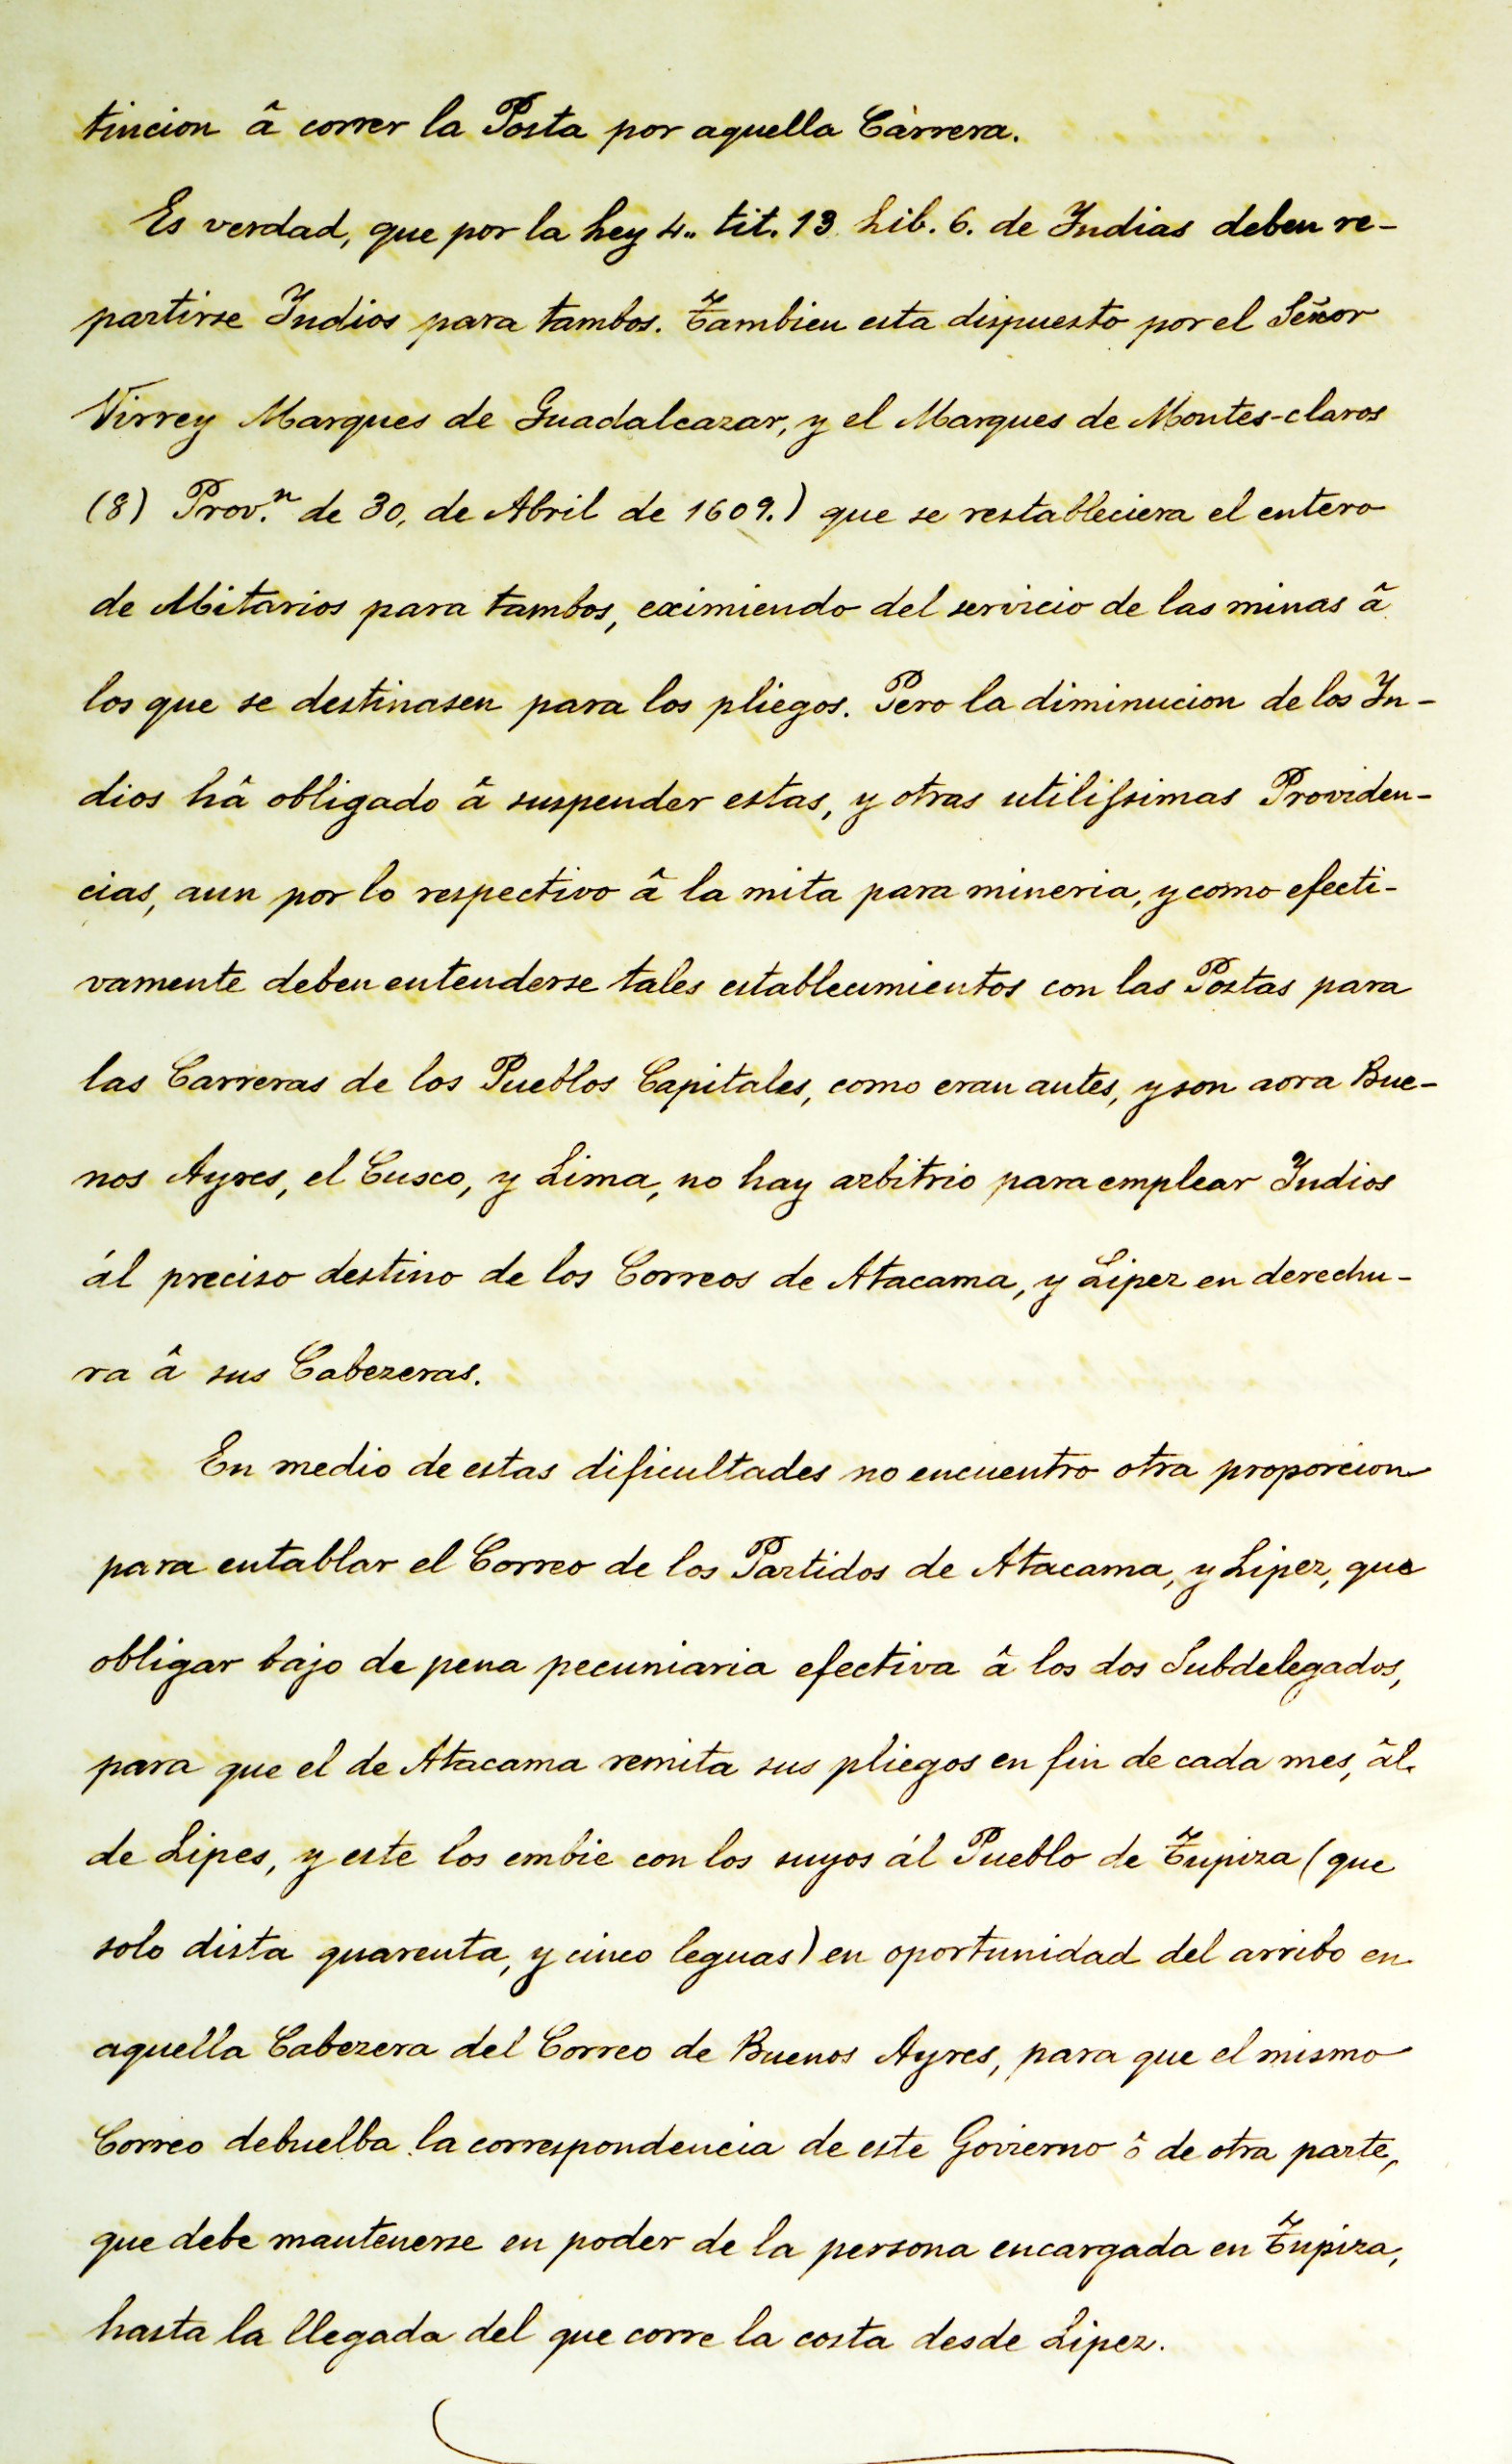 tincion â correr la Posta por aquella Carrera.
Es verdad, que por la Ley 4.. tit. 13 Lib. 6. de Indias deben re-
partirse Indios para tambos. Tambien esta dispuesto por el Señor
Virrey Marques de Guadalcazar, y el Marques de Montes-claros
(8) Prov.n de 30, de Abril de 1609.) que se restableciera el entero
de Mitarios para tambos, eximiendo del servicio de las minas â
los que se destinasen para los pliegos. Pero la diminucion de los In-
dios hâ obligado â suspender estas, y otras utilissimas Providen-
cias, aun por lo respectivo â la mita para mineria, y como efecti-
vamente deben entenderse tales establecimientos con las Postas para
las Carreras de los Pueblos Capitales, como eran antes, y son aora Bue-
nos Ayres, el Cusco, y Lima, no hay arbitrio para emplear Indios
ál preciso destino de los Correos de Atacama, y Lipez en derechu-
ra â sus Cabezeras.
En medio de estas dificultades no encuentro otra proporcion
para entablar el Correo de los Partidos de Atacama, y Lipez, que
obligar bajo de pena pecuniaria efectiva â los dos Subdelegados,
para que el de Atacama remita sus pliegos en fin de cada mes, âl
de Lipes, y este los embie con los suyos ál Pueblo de Tupiza (que
solo dista quarenta, y cinco leguas) en oportunidad del arribo en
aquella Cabezera del Correo de Buenos Ayres, para que el mismo
Correo debuelba la correspondencia de este Govierno ô de otra parte,
que debe mantenerse en poder de la persona encargada en Tupiza,
hasta la llegada del que corre la costa desde Lipez.